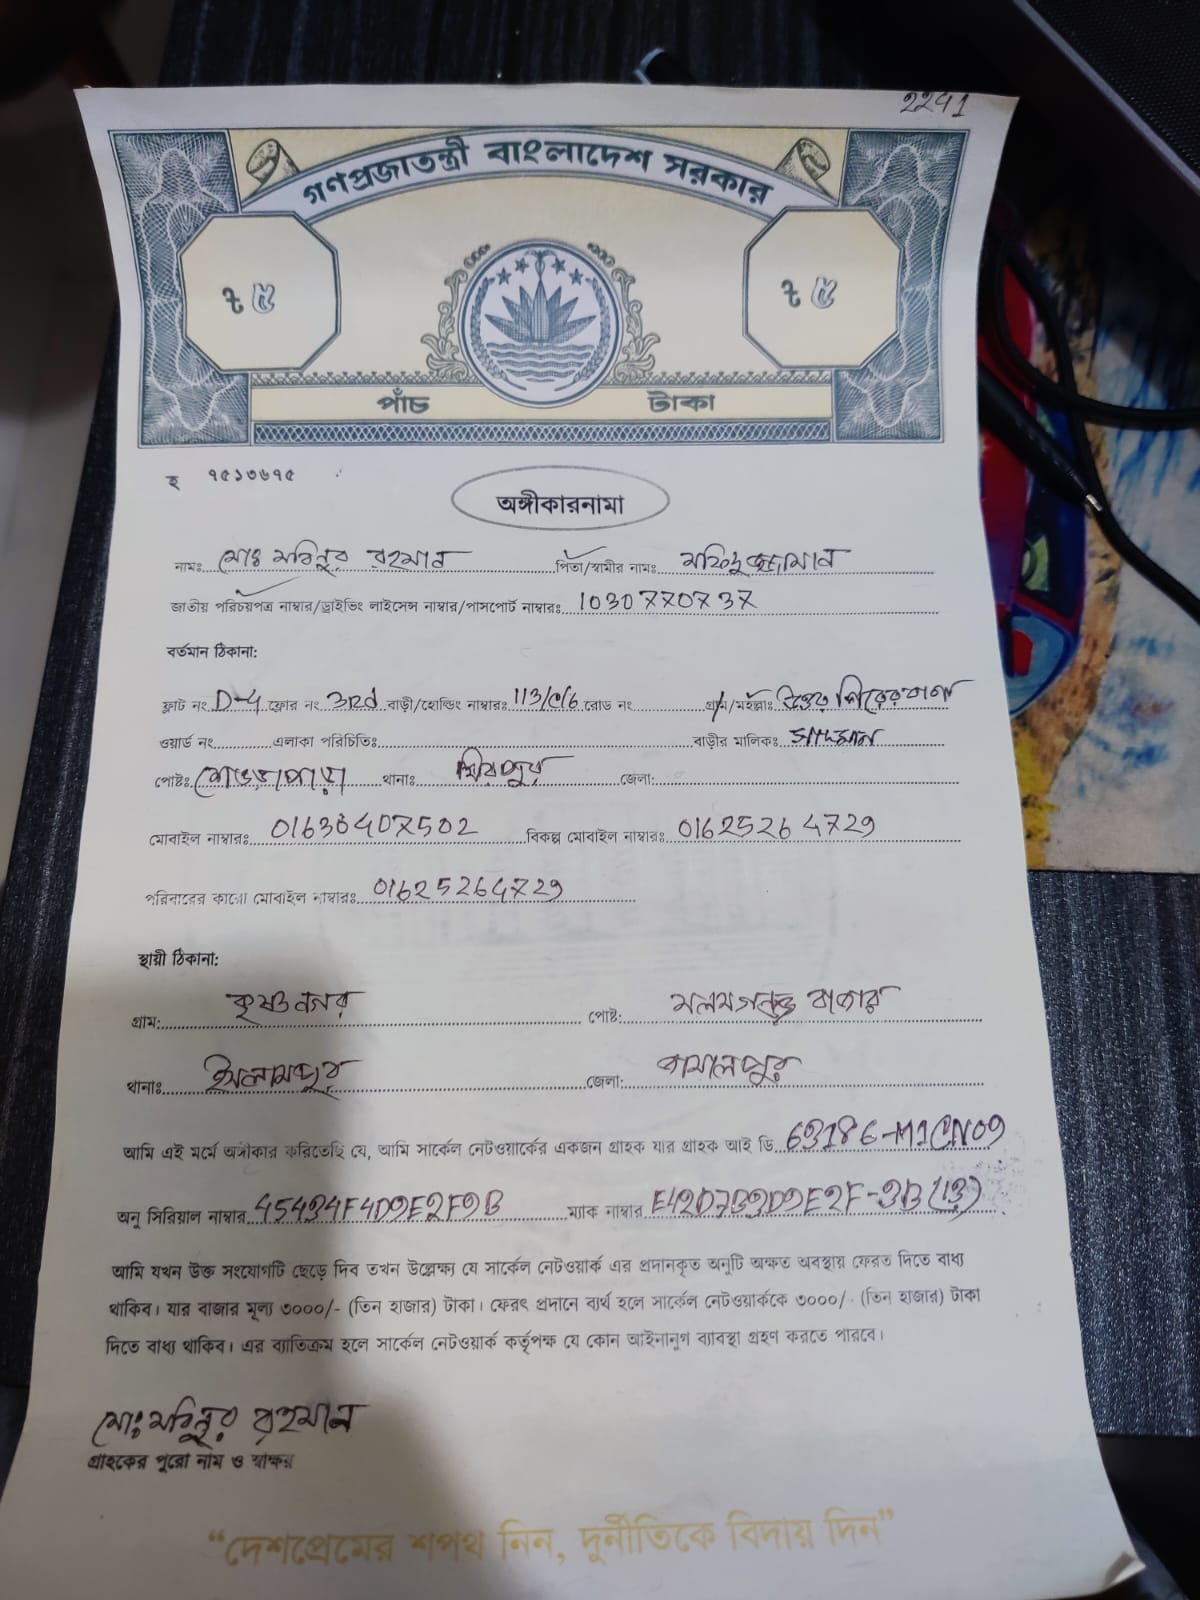 2241
গণপ্রজাতন্ত্রী বাংলাদেশ সরকার
৳ ৫ ৳ ৫
পাঁচ টাকা
হ ৭৫১৩৬৭৫
অঙ্গীকারনামা
নামঃ মোঃ মবিনুর রহমান পিতা/স্বামীর নামঃ মফিদুজ্জামান
জাতীয় পরিচয়পত্র নাম্বার/ড্রাইভিং লাইসেন্স নাম্বার/পাসপোর্ট নাম্বারঃ 1030770737
বর্তমান ঠিকানা:
ফ্লাট নং D-4 ফ্লোর নং 3rd বাড়ী/হোল্ডিং নাম্বারঃ 113/C/6 রোড নং গ্রাম/মহল্লাঃ উত্তর পিরেরবাগ
ওয়ার্ড নং এলাকা পরিচিতিঃ বাড়ীর মালিকঃ
পোষ্টঃ শেওড়াপাড়া থানাঃ মিরপুর জেলা:
মোবাইল নাম্বারঃ 01630407502 বিকল্প মোবাইল নাম্বারঃ 01625264729
পরিবারের কারো মোবাইল নাম্বারঃ 01625264729
স্থায়ী ঠিকানা:
গ্রাম: কৃষ্ণনগর পোষ্ট: মলমগঞ্জ বাজার
থানাঃ ইসলামপুর জেলা: জামালপুর
আমি এই মর্মে অঙ্গীকার করিতেছি যে, আমি সার্কেল নেটওয়ার্কের একজন গ্রাহক যার গ্রাহক আই ডি 63186-M1CN09
অনু সিরিয়াল নাম্বার 45494F4D9E2F9B ম্যাক নাম্বার E42D7B9D9E2F-9B (13)
আমি যখন উক্ত সংযোগটি ছেড়ে দিব তখন উল্লেক্ষ্য যে সার্কেল নেটওয়ার্ক এর প্রদানকৃত অনুটি অক্ষত অবস্থায় ফেরত দিতে বাধ্য
থাকিব। যার বাজার মূল্য ৩০০০/- (তিন হাজার) টাকা। ফেরৎ প্রদানে ব্যর্থ হলে সার্কেল নেটওয়ার্ককে ৩০০০/- (তিন হাজার) টাকা
দিতে বাধ্য থাকিব। এর ব্যাতিক্রম হলে সার্কেল নেটওয়ার্ক কর্তৃপক্ষ যে কোন আইনানুগ ব্যাবস্থা গ্রহণ করতে পারবে।
মোঃ মবিনুর রহমান
গ্রাহকের পুরো নাম ও স্বাক্ষর
“দেশপ্রেমের শপথ নিন, দুর্নীতিকে বিদায় দিন”